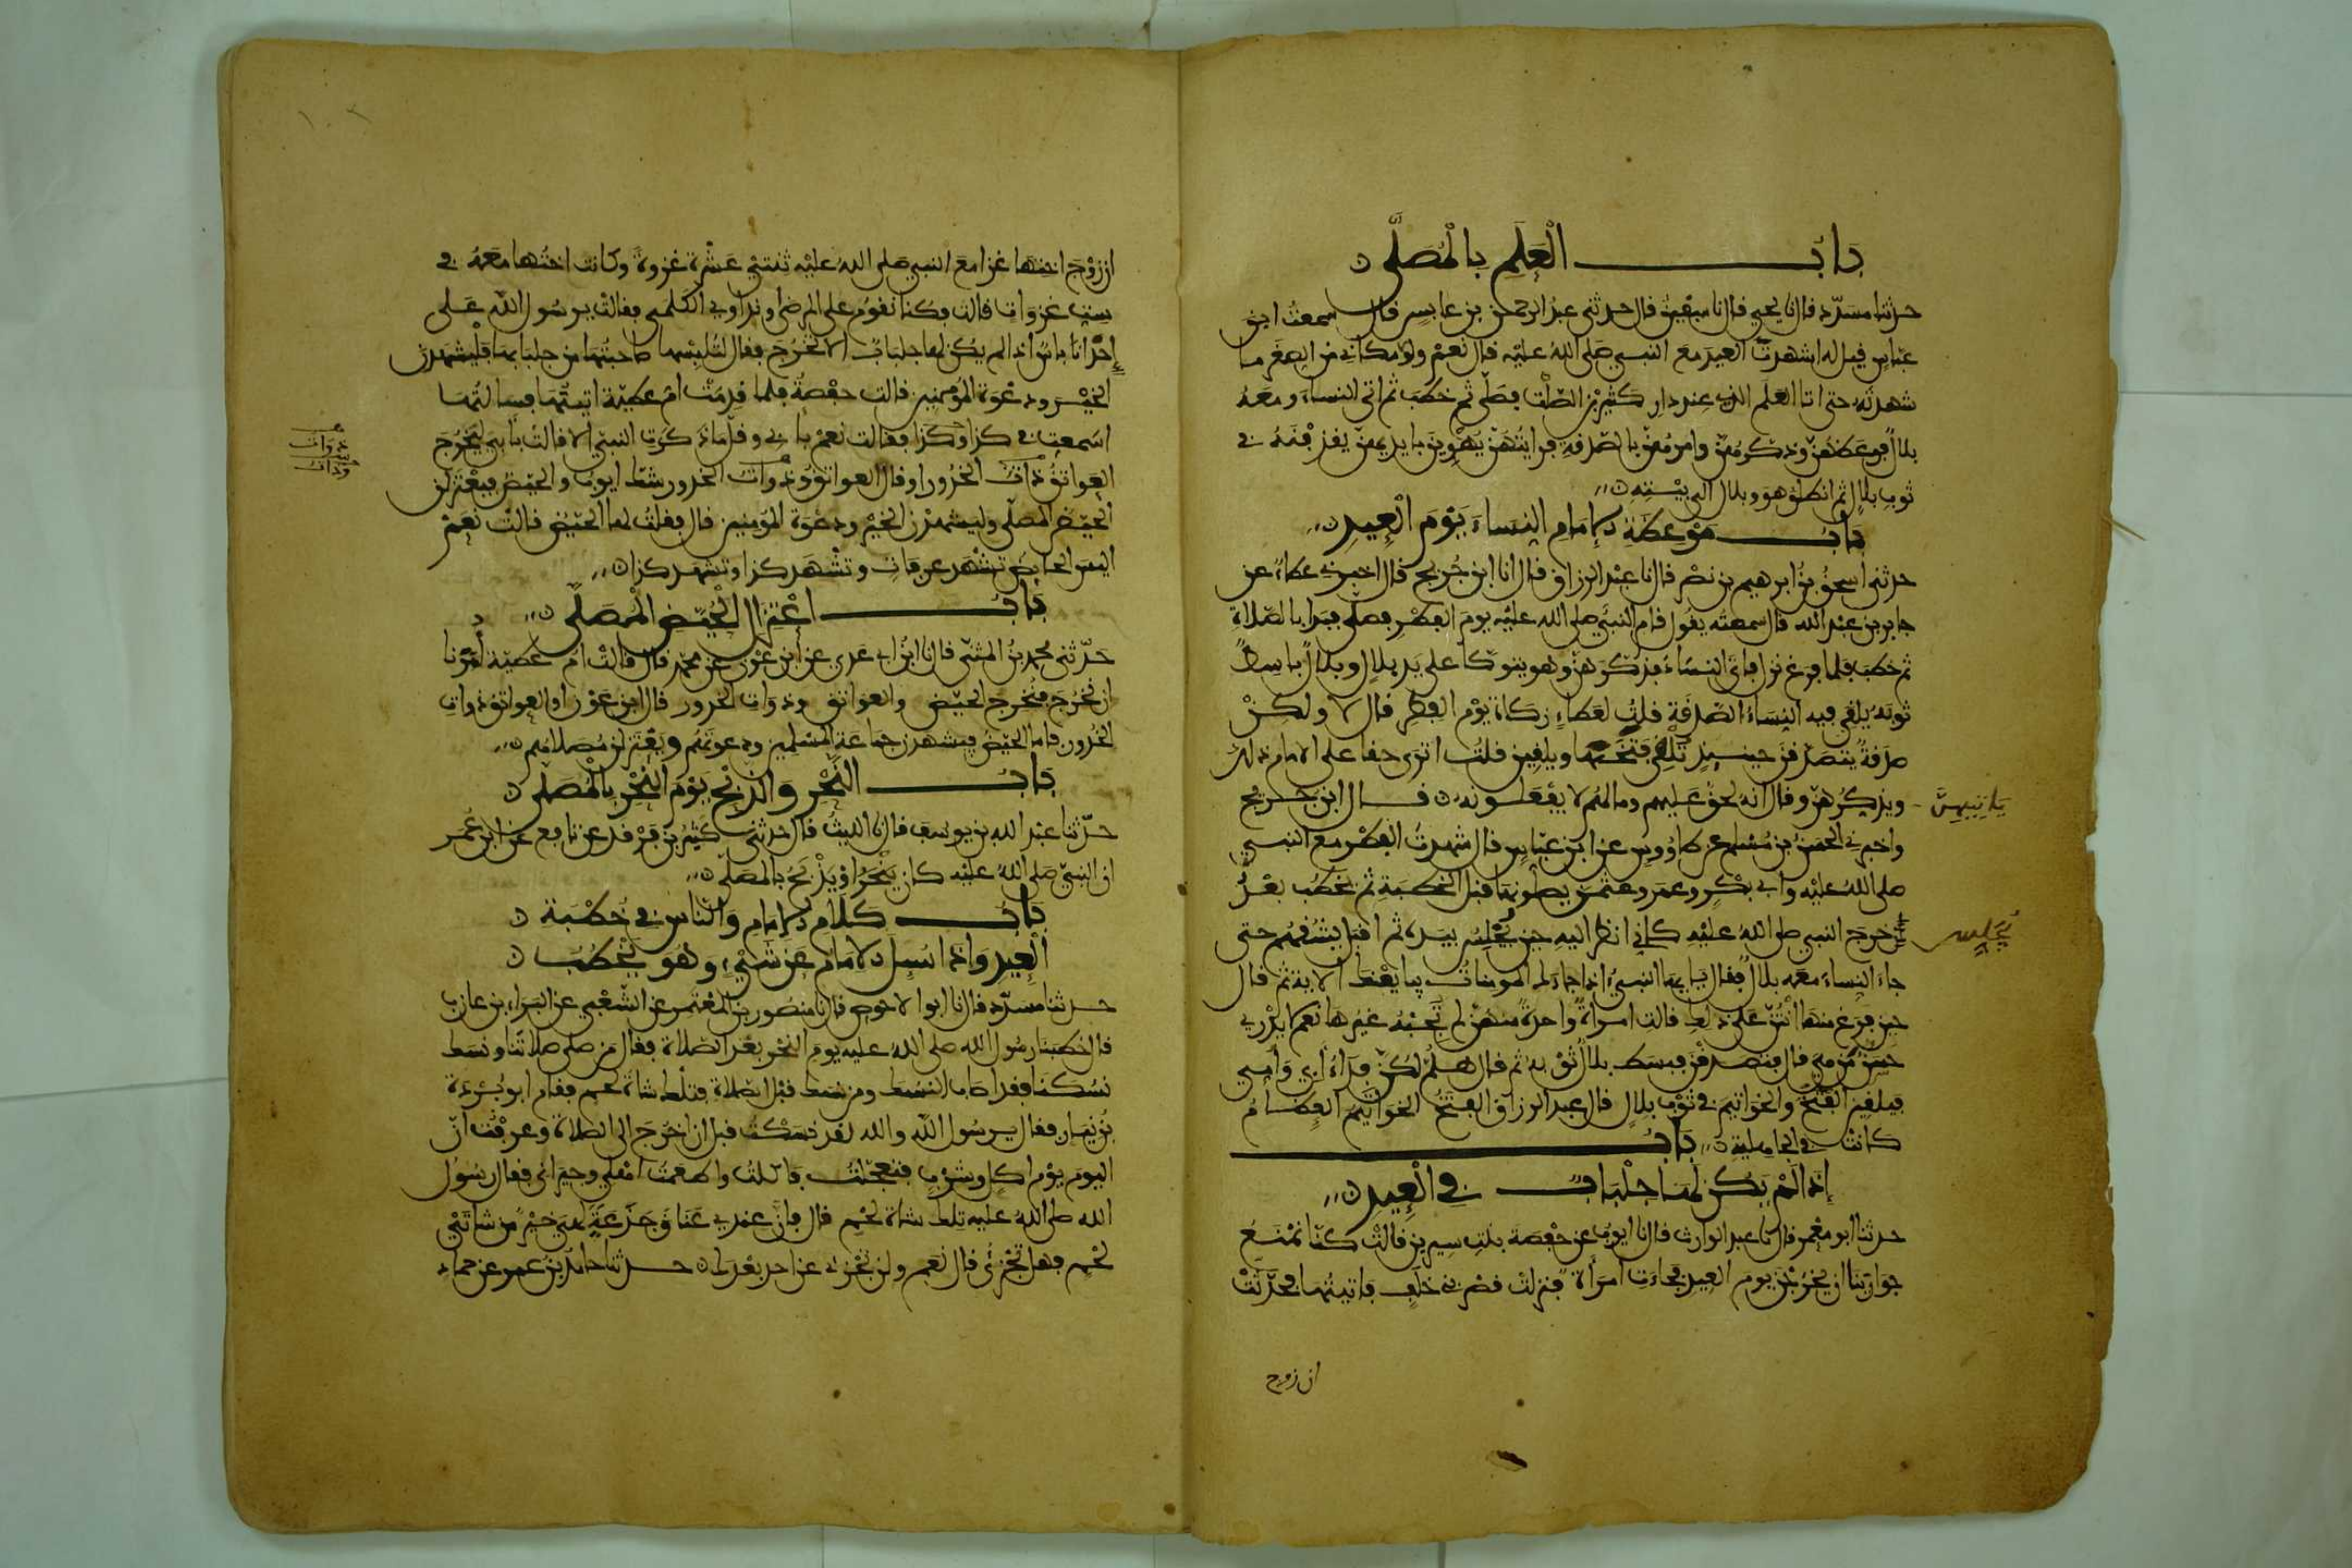 بَابُ الْعَلَمِ بِالْمُصَلَّى
حدثنا مسدّد قال نا يحيى قال نا سفين قال حدثني عبد الرحمن بن عابس قال سمعت ابن
عباس قيل له اشهدت العيد مع النبي صلى الله عليه قال نعم ولولا مكاني من الصغر ما
شهدته حتى اتا العلم الذي عند دار كثير بن الصلت فصلّى ثم خطب ثم اتى النساء ومعه
بلال فوعظهنّ وذكرهنّ وامرهنّ بالصدقة فرايتهنّ يهوين بايديهنّ يقذفنه في
ثوب بلال ثم انطلق هو وبلال الى بيته
بَابُ مَوْعِظَةِ الإمَامِ النِّسَاءَ يَوْمَ الْعِيدِ
حدثني اسحق بن ابرهيم بن نصر قال نا عبد الرزاق قال انا ابن جريج قال اخبرني عطاء عن
جابر بن عبد الله قال سمعته يقول قام النبي صلى الله عليه يوم الفطر فصلى فبدا بالصلاة
ثم خطب فلما فرغ نزل فاتى النساء فذكرهنّ وهو يتوكا على يد بلال وبلال باسط
ثوبه يلقي فيه النساء الصدقة قلت لعطاء زكاة يوم الفطر قال لا ولكن
صدقة يتصدقن حينيذ تلقي فتخها ويلقين قلت اترى حقا على الامام ذلك
ويذكرهنّ وقال انه لحق عليهم وما لهم لا يفعلونه قال ابن جريج
ياتيهنّ
واخبرني الحسن بن مسلم عن طاووس عن ابن عباس قال شهدت الفطر مع النبي
صلى الله عليه وابي بكر وعمر وعثمن يصلونها قبل الخطبة ثم يخطب بعد
خرج النبي صلى الله عليه كاني انظر اليه حين يجلس بيده ثم اقبل يشقهم حتى
يُجَلِّس
جاء النساء معه بلال فقال يايها النبي اذا جاءك المومنات يبايعنك الاية ثم قال
حين فرغ منها أنتنّ على ذلك قالت امراة واحدة منهنّ لم تجبه غيرها نعم لا يدري
حسن من هي قال فتصدقن فبسط بلال ثوبه ثم قال هلمّ لكنّ فداء ابي وامي
فيلقين الفتخ والخواتيم في ثوب بلال قال عبد الرزاق الفتخ الخواتيم العظام
كانت في الجاهلية بَابُ
إِذَا لَمْ يَكُنْ لَهَا جِلْبَابٌ فِي الْعِيدِ
حدثنا ابو معمر قال نا عبد الوارث قال نا ايوب عن حفصة بنت سيرين قالت كنّا نمنع
جوارينا ان يخرجن يوم العيد فجاءت امرأة فنزلت قصر بني خلف فاتيتها فحدّثت
ان زوج
ان زوج اختها غزا مع النبي صلى الله عليه ثنتي عشرة غزوة وكانت اختها معه في
ست غزوات قالت فكنا نقوم على المرضى ونداوي الكلمى فقالت يرسول الله على
إحدانا باس اذا لم يكن لها جلباب ألا تخرج فقال لتلبسها صاحبتها من جلبابها فليشهدن
الخير ودعوة المومنين قالت حفصة فلما قدمت ام عطيّة اتيتها فسالتها
اسمعت في كذا وكذا فقالت نعم بابي وقلّ ما ذكرت النبيّ الا قالت بأبي لتخرج
العواتق ذوات الخدور او قال العواتق وذوات الخدور شك ايوب والحيّض فيعتزلن
ذوات
وذوات
الحيّض المصلّى وليشهدن الخير ودعوة المومنين قال فقلت لها الحيّض قالت نعم
اليس الحايض تشهد عرفات وتشهد كذا وتشهد كذا
بَابُ اعْتِزَالِ الْحُيَّضِ الْمُصَلَّى
حدّثني محمد بن المثنّى قال نا ابن ابي عدي عن ابن عون عن محمد قال قالت ام عطيّة أمرنا
ان نخرج فنخرج الحيّض والعواتق وذوات الخدور قال ابن عون او العواتق ذوات
الخدور فاما الحيّض فيشهدن جماعة المسلمين ودعوتهم ويعتزلن مصلاهم
بَابُ النَّحْرِ وَالذَّبْحِ يَوْمَ النَّحْرِ بِالْمُصَلَّى
حدّثنا عبد الله بن يوسف قال نا الليث قال حدثني كثير بن فرقد عن نافع عن ابن عمر
ان النبيّ صلى الله عليه كان ينحر او يذبح بالمصلّى
بَابُ كَلَامِ الإمَامِ وَالنَّاسِ فِي خُطْبَةِ
الْعِيدِ وَإِذَا سُئِلَ الإمَامُ عَنْ شَيْءٍ وَهُوَ يَخْطُبُ
حدثنا مسدّد قال نا ابو الاحوص قال نا منصور بن المعتمر عن الشعبي عن البراء بن عازب
قال خطبنا رسول الله صلى الله عليه يوم النحر بعد الصلاة فقال من صلى صلاتنا ونسك
نسكنا فقد اصاب النسك ومن نسك قبل الصلاة فتلك شاة لحم فقام ابو بردة
بن نيار فقال يرسول الله والله لقد نسكت قبل ان اخرج الى الصلاة وعرفت انّ
اليوم يوم اكل وشرب فتعجّلت فاكلت واطعمت اهلي وجيراني فقال رسول
الله صلى الله عليه تلك شاة لحم قال فانّ عندي عناق جذعة لهي خير من شاتي
لحم فهل تجزئ قال نعم ولن تجزي عن احد بعدك حدثنا حامد بن عمر عن حماد